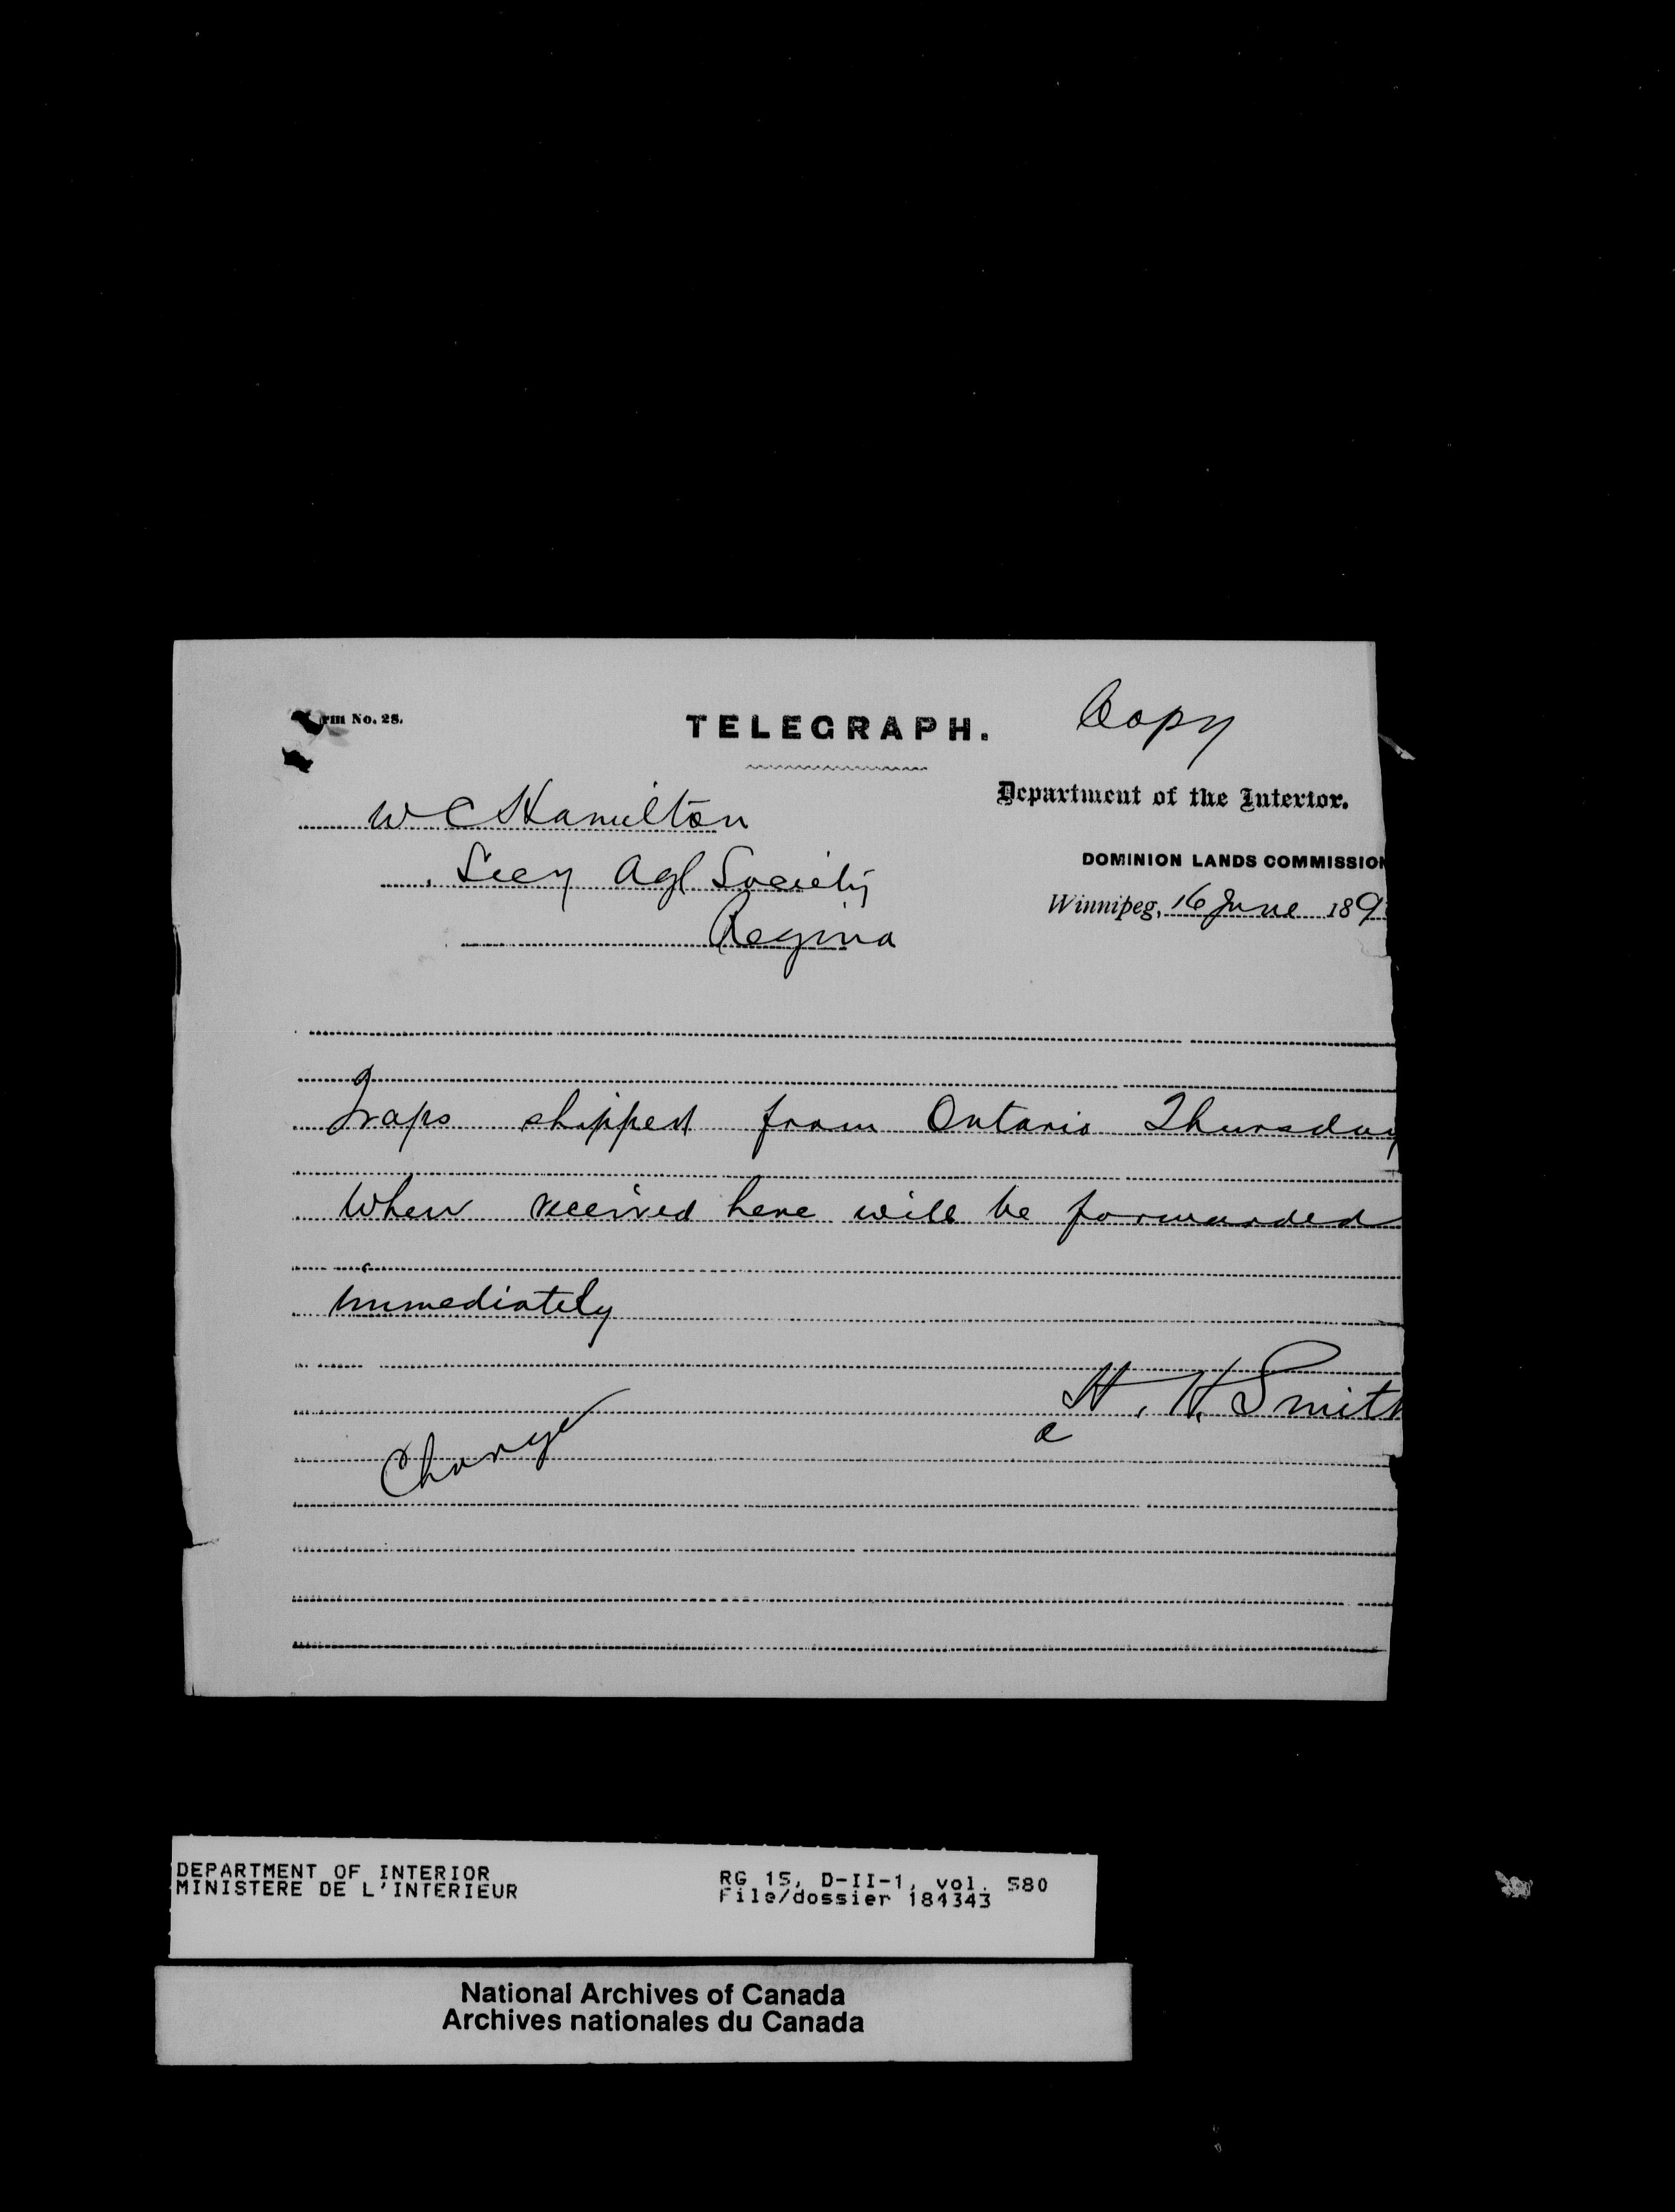 rm No. 28.
TELEGRAPH.
Copy
Department of the Interior.
W C Hamilton
DOMINION LANDS COMMISSION
Secy Agl Society
Winnipeg, 16 June 189
Regina
Traps shipped from Ontario Thursday
When received here will be forwarded
immediately
H. H. Smith
Charge
DEPARTMENT OF INTERIOR
MINISTERE DE L'INTERIEUR
RG 15, D-II-1, vol. 580
File/dossier 184343
National Archives of Canada
Archives nationales du Canada